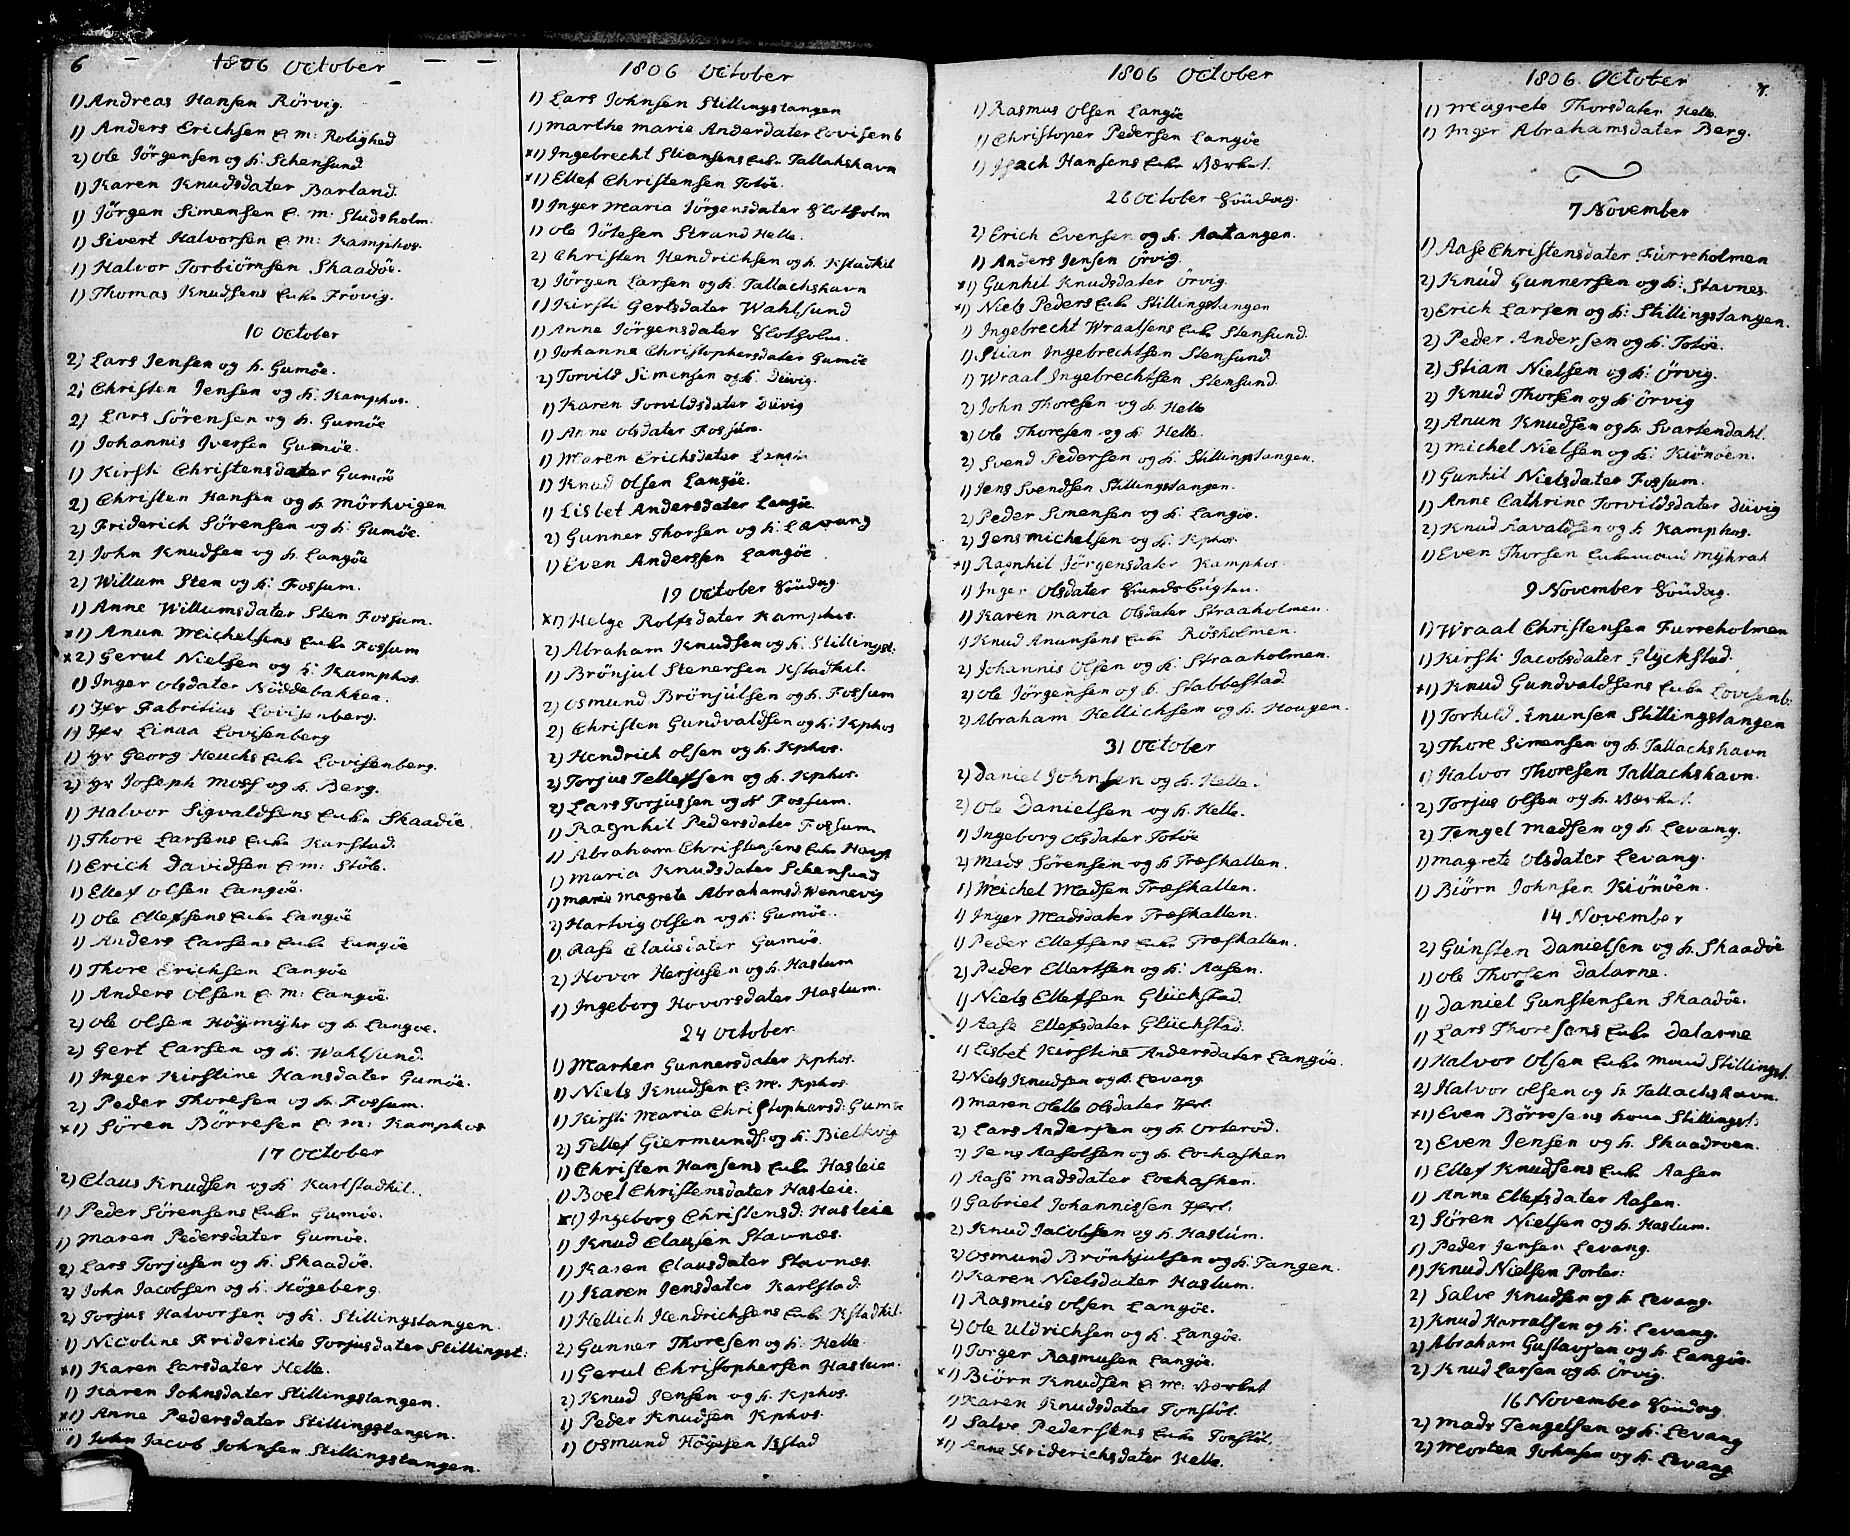 6
1806 October
1) Andreas Hansen Rörvig.
1) Anders Erichsen E. M: Rolighed
2) Ole Jörgensen og h: Schensund
1) Karen Knudsdater Barland.
1) Jörgen Simensen E. M: Studsholm.
1) Sivert Halvorsen E. M: Kamphos.
1) Halvor Torbiörnsen Skaadöe.
1) Thomas Knudsens Enke Frövig.
10 October
2) Lars Jensen og h. Gumöe.
2) Christen Jensen og h: Kamphos.
2) Lars Sörensen og h. Gumöe
1) Johannis Iversen Gumöe.
1) Kirsti Christensdater Gumöe
2) Christen Hansen og h. Mörkvigen
2) Friderich Sörensen og h: Gumöe.
2) John Knudsen og h. Langöe
2) Willum Sten og h: Fossum.
1) Anne Willumsdater Sten Fossum.
*1) Anun Michelsens Enke Fossum
*2) Gerul Nielsen og h: Kamphos.
1) Inger Olsdater Nöddebakken.
1) Jfr Fabritius Lovisenberg.
1) Jfr Linaa Lovisenberg
1) Hr Georg Heuchs Enke Lovisenberg.
2) Hr Joseph Moss og h. Berg.
1) Halvor Sigvaldsens Enke Skaadöe.
1) Thore Larsens Enke Karstad.
1) Erich Davidsen E. M: Stöle.
1) Ellef Olsen Langöe.
1) Ole Ellefsens Enke Langöe
1) Anders Larsens Enke Langöe
1) Thore Erichsen Langöe
1) Anders Olsen E. M: Langöe.
2) Ole Olsen Höymyhr og h. Langoe.
2) Gert Larsen og h. Wahlsund.
1) Inger Kirstine Hansdater Gumöe.
2) Peder Thoresen og h. Fossum.
*1) Sören Börresen E. M: Kamphos
17 October
2) Claus Knudsen og h: Karlstadkil.
1) Peder Sörensens Enke Gumöe.
1) Maren Pedersdater Gumöe.
2) Lars Torjusen og h. Skaadöe.
2) John Jacobsen og h. Högeberg.
2) Torjus Halvorsen og h: Stillingstangen.
1) Nicoline Frideriche Torjusdater Stillingst:
*1) Karen Larsdater Helle.
1) Karen Johnsdater Stillingstangen.
*1) Anne Pedersdater Stillingstangen.
1) John Jacob Johnsen Stillingstangen.
1806 October
1) Lars Johnsen Stillingstangen
1) Marthe Marie Anderdater Lovisenb
*1) Ingebrecht Stiansens Enke Tallakshavn
*1) Ellef Christensen Totöe.
1) Inger Maria Jörgensdater Slotholm
1) Ole Strand Helle.
2) Christen Hendrichsen og h. Kstadkil
2) Jörgen Larsen og h. Tallachshavn
1) Kirsti Gertsdater Wahlsund
1) Anne Jörgensdater Slotholm.
1) Johanne Christophersdater Gumöe
2) Torvild Simensen og h. Düvig.
1) Karen Torvildsdater Düvig
1) Anne Olsdater Fossum.
1) Maren Erichsdater
1) Knud Olsen Langöe.
1) Lisbet Andersdater Langöe.
2) Gunner Thorsen og h: Lavang
1) Even Anderssen Langöe
19 October Söndag.
*1) Helge Rolfsdater Kamphos.
2) Abraham Knudsen og h: Stillingst:
1) Brönjul Stenersen Kstadkil.
2) Osmund Brönjulsen og h. Fossum
2) Christen Gundvaldsen og h: Kphos
2) Hendrich Olsen og h. Kphos.
2) Torjus Tellefsen og h. Kphos.
2) Lars Torjussen og h: Fossum.
1) Ragnhil Pedersdater Fossum.
1) Abraham Christensens Enke
1) Maria Knudsdater Schensund
1) Marie Magrete Abrahamsd: Wennevig
2) Hartvig Olsen og h: Gumöe.
1) Aase Clausdater Gumöe.
2) Hovor Herjusen og h. Haslum
1) Ingeborg Hovorsdater Haslum.
24 October.
1) Marken Gunnersdater Kphos.
1) Niels Knudsen E. M. Kphos
1) Kirsti Maria Christophersd: Gumöe
2) Tellef Giermunds: og h: Bielkvig
1) Christen Hansens Enke Hasleie
1) Boel Christensdater Hasleie.
*1) Ingeborg Christensd: Hasleie
1) Knud Clausen Stavnæs.
1) Karen Clausdater Stavnæs.
1) Karen Jensdater Karlstad.
1) Hellich Hendrichsens Enke Kstadkil.
2) Gunner Thoresen og h: Helle.
1) Gerul Christophersen Haslum.
2) Knud Jensen og h: Kphos.
1) Peder Knudsen Kphos.
1) Osmund Högesen Kstad
1806 October
1) Rasmus Olsen Langöe
1) Christoper Pedersen Langöe
1) Isach Hansens Enke Værket.
26 October Söndag.
2) Erich Evensen og h. Aatangen.
1) Anders Jensen Örvig.
*1) Gunhil Knudsdater Örvig.
*1) Niels Peders Enke Stillingstangen
1) Ingebrecht Wraalsens Enke Stensund.
1) Stian Ingebrechtsen Stensund.
1) Wraal Ingebrechtsen Stensund.
2) John Thoresen og h. Helle
2) Ole Thoresen og h. Helle.
2) Svend Pedersen og h: Stillingstangen.
1) Jens Svendsen Stillingstangen.
2) Peder Simensen og h: Langöe.
2) Jens Michelsen og h: Kphos.
*1) Ragnhil Jörgensdater Kamphos.
1) Inger Olsdater
1) Karen Maria Olsdater Straaholmen.
1) Knud Anunsens Enke Rösholmen.
2) Johannis Olsen og h: Straaholmen.
2) Ole Jörgensen og h: Stabbestad
2) Abraham Kellichsen og h. Hougen.
31 October
2) Daniel Johnsen og h. Helle.
2) Ole Danielsen og h. Helle.
1) Ingeborg Olsdater Totöe
2) Mads Sörensen og h. Træskallen.
1) Michel Madsen Træskallen.
1) Inger Madsdater Træskallen.
1) Peder Ellefsens Enke Træskallen.
2) Peder Ellertsen og h: Aasen.
1) Niels Ellefsen Glückstad.
1) Aase Ellefsdater Glückstad.
1) Lisbet Kirstine Andersdater Langöe.
2) Niels Knudsen og h. Levang
1) Maren Olelle Olsdater
2) Lars Andersen og h. Orteröd.
2) Jens Aasolsen og h. Lochasken
1) Aase Madsdater Lochasken.
1) Gabriel Johannissen
2) Knud Jacobsen og h: Haslüm.
2) Osmund Brönhjulsen og h: Tangen.
1) Karen Nielsdater Haslum.
1) Rasmüs Olsen Langöe.
2) Ole Uldrichsen og h: Langöe.
1) Torger Rasmusen Langöe.
*1) Biörn Knudsen E. M: Værket
1) Karen Knudsdater Tonstöl.
1) Salve Pedersens Enke Tonstöl.
*1) Anne Friderichsdater Helle.
1806. October
7.
1) Magrete Thorsdater Helle.
1) Inger Abrahamsdater Berg.
7 November
1) Aase Christensdater Furreholmen
2) Knud Gunnersen og h: Stavnes.
2) Erich Larsen og h: Stillingstangen.
2) Peder Andersen og h: Totöe.
2) Stian Nielsen og h: Örvig.
2) Knud Thorsen og h: Örvig
2) Anun Knudsen og h. Svartendahl.
2) Michel Nielsen og h: Kiönöen.
1) Gunhil Nielsdater Fossum.
1) Anne Cathrine Torvildsdater Düvig
2) Knud Havaldsen og h: Kamphos.
1) Even Thorsen Enkemand Myhrak
9 November Söndag.
1) Wraal Christensen Furreholmen
1) Kirsti Jacobsdater Glyckstad.
*1) Knud Gundvaldsens Enke Lovisenb:
1) Torkild Knunsen Stillingstangen
2) Thore Simensen og h. Tallachshavn
1) Halvor Thoresen Tallachshavn.
2) Torjus Olsen og h. Værket.
2) Tengel Madsen og h. Levang.
1) Magrete Olsdater Levang.
1) Biörn Johnsen Kiönöen.
14 November
2) Günsten Danielsen og h. Skaadöe
1) Ole Thorsen Dalarne.
1) Daniel Gunstensen Skaadöe.
1) Lars Thoresens Enke Dalarne
1) Halvor Olsen Enke Mand Stillingst.
2) Halvor Olsen og h. Tallachshavn.
*1) Even Börresens Stillingst:
2) Even Jensen og h. Skaadroen.
1) Ellef Knudsens Enke Aasen
1) Anne Ellefsdater Aasen.
2) Sören Nielsen og h: Haslum.
1) Peder Jensen Levang.
1) Knud Nielsen Porter:
2) Salve Knudsen og h. Levang.
2) Knud Harralsen og h. Levang.
2) Abraham Gustavsen og h. Langöe.
2) Knud Larsen og h: Örvig.
16 November Söndag
2) Mads Tengelsen og h: Levang
2) Morten Johnsen og h. Levang